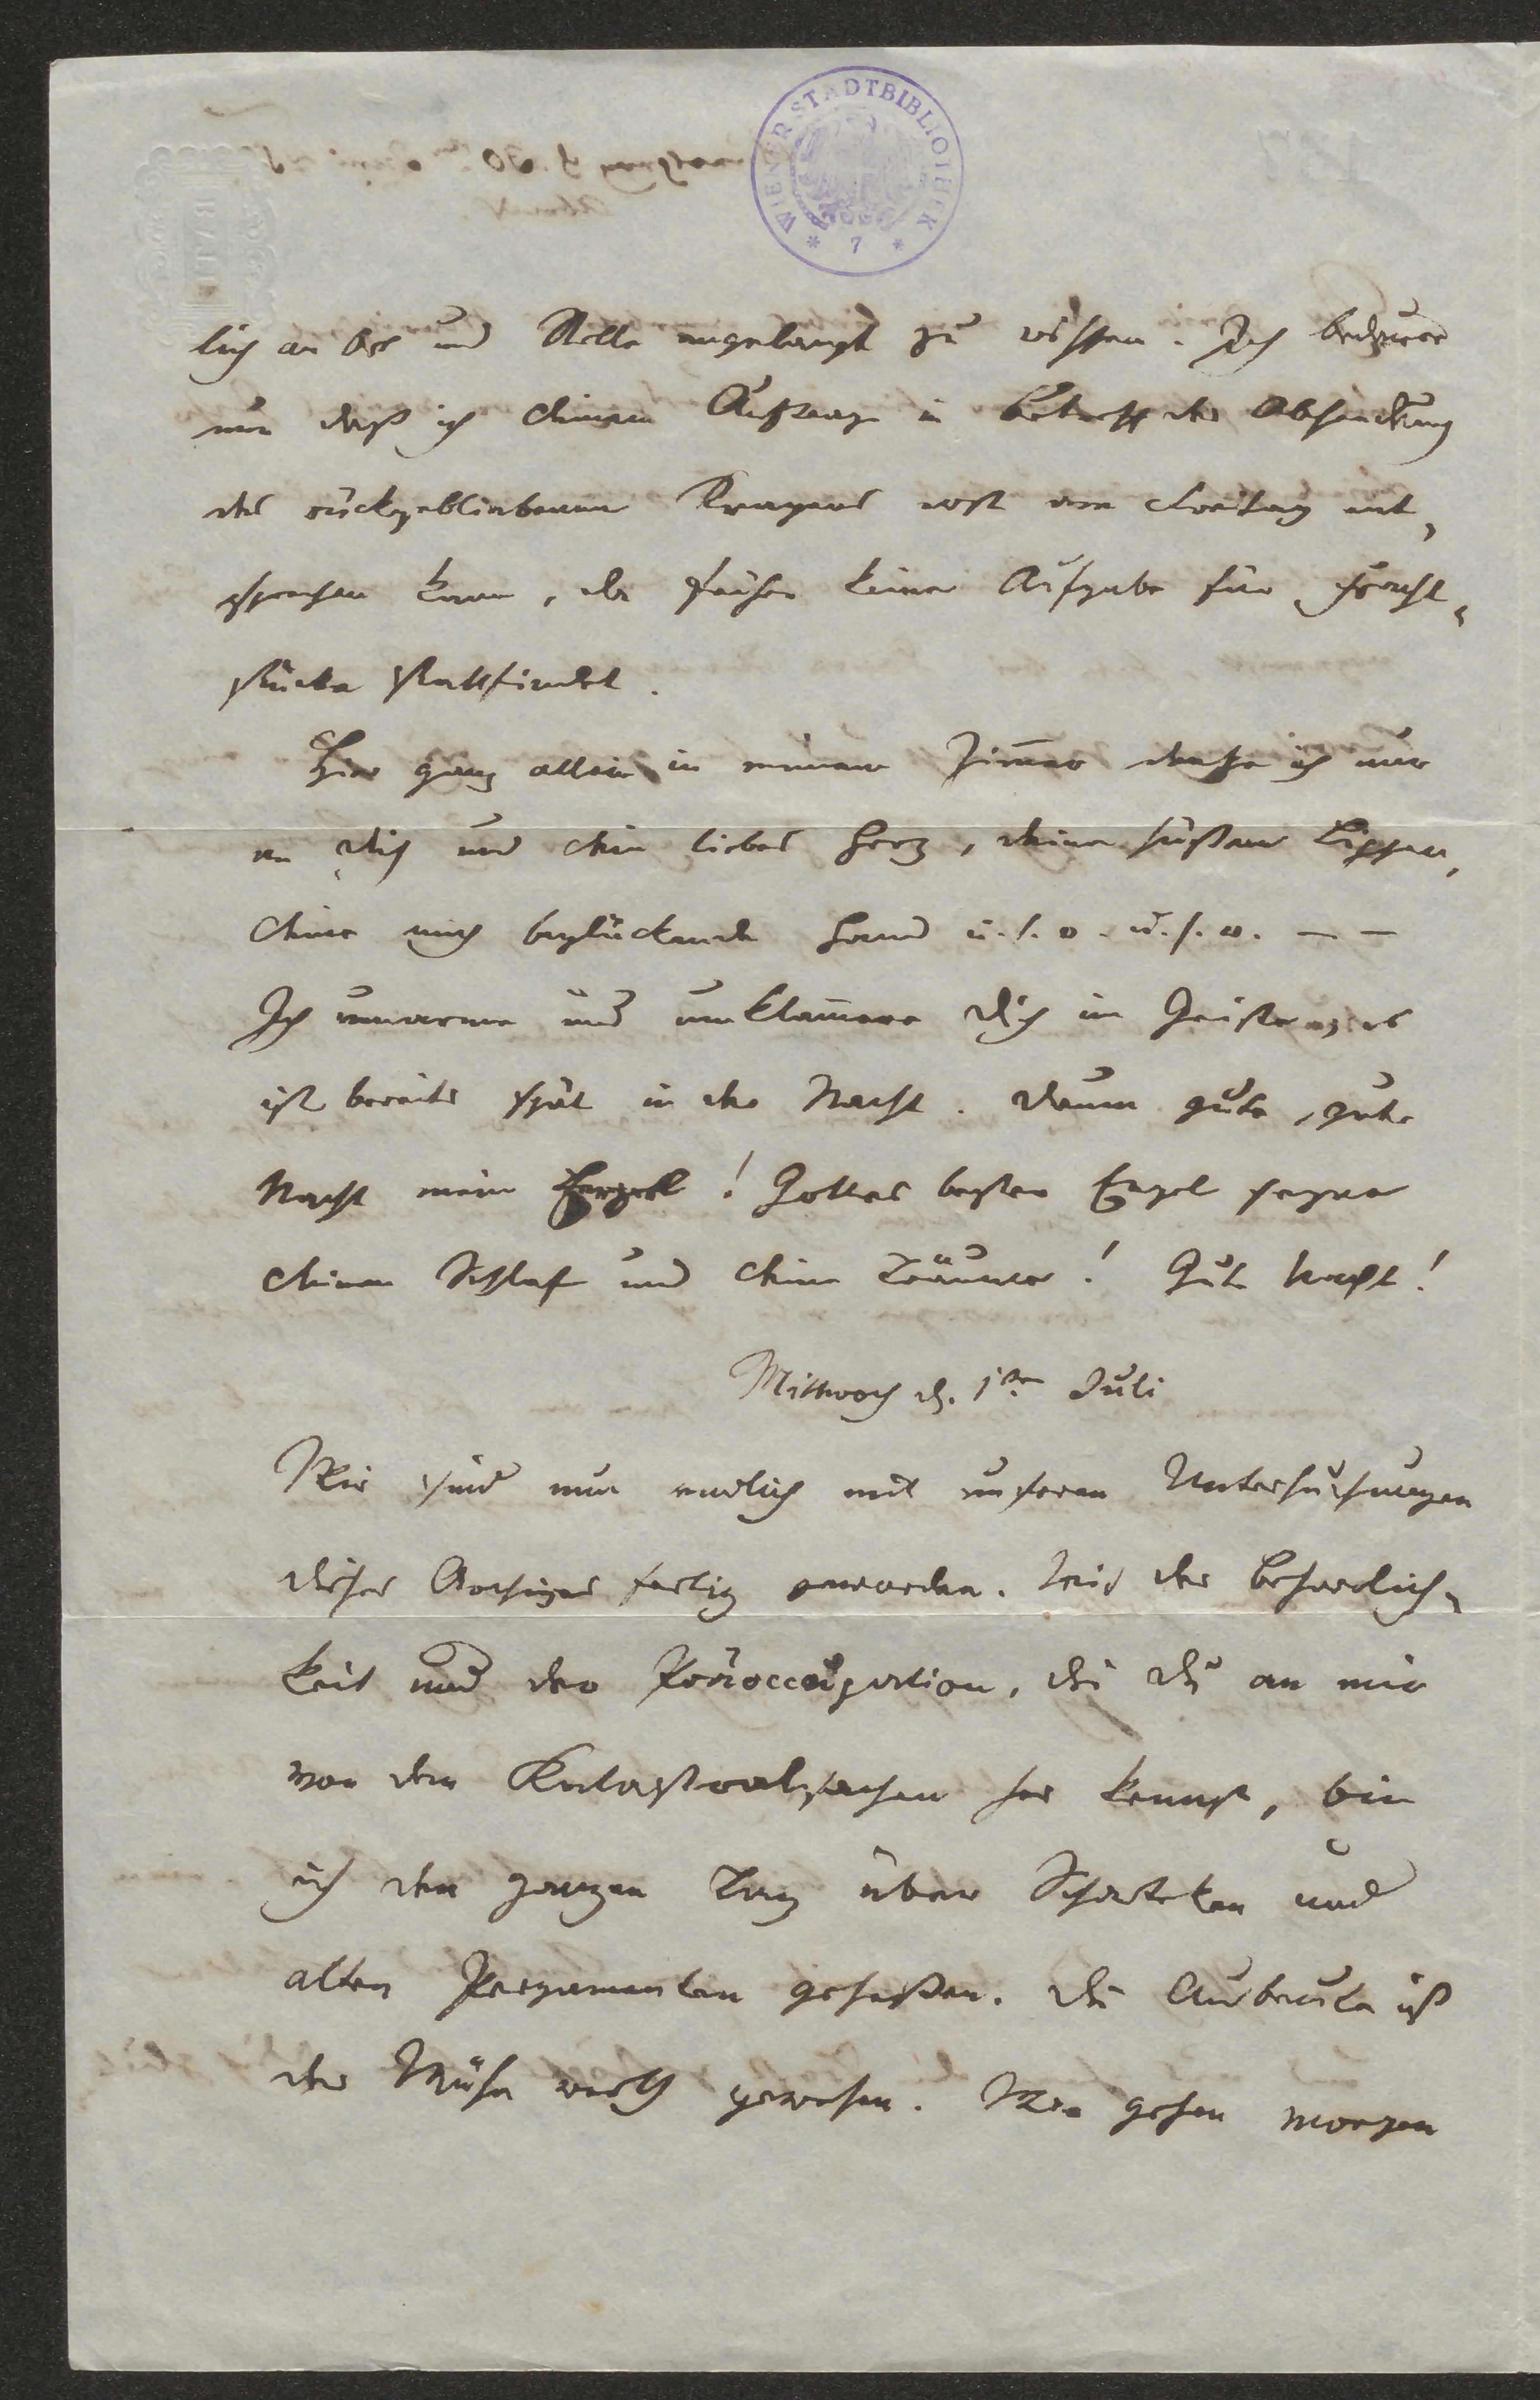 WIENER STADTBIBLIOTHEK
* 7 *
lich an Ort und Stelle angelangt zu wissen. Ich bedauere
nur daß ich deinem Auftrage in Betreff der Absendung
des rückgebliebenen Kragens erst am Freitag ent,
sprechen kann, da früher keine Aufgabe für Fracht,
stücke stattfindet.
Hier ganz allein in meinem Zimmer denke ich nur
an dich und dein liebes Herz, deine süßen Lippen,
deine mich beglückende Hand u.s.w. u.s.w. — —
Ich umarme und umklamere dich im Geiste, es
ist bereits spät in der Nacht. Darum gute, gute
Nacht mein Herzerl! Gottes bester Engel segne
deinen Schlaf und deine Träume! Gute Nacht!
Mittwoch d. 1ten Juli
Wir sind nun endlich mit unseren Untersuchungen
dieses Archives fertig geworden. Mit der Beharrlich,
keit und der Präoccupation, die du an mir
von den Katastralsachen her kennst, bin
ich den ganzen Tag über Scharteken und
alten Pergamenten gesessen. Die Ausbeute ist
der Mühe werth gewesen. Wir gehen morgen